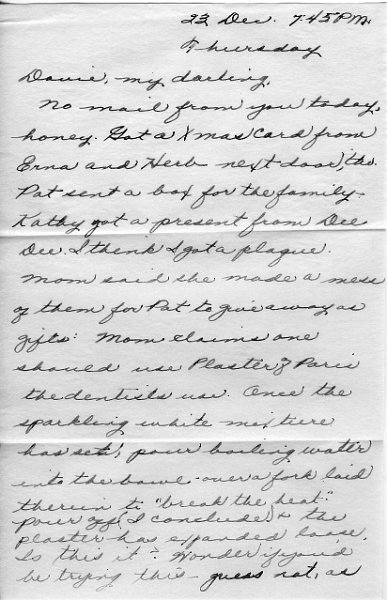 23 Dec. 7:45 P.M.
Thursday
Davie, my darling,
No mail from you today,
honey. Got a Xmas card from
Erna and Herb next door, tho.
Pat sent a box for the family.
Kathy got a present from Dee
Dee. I think I got a plaque.
Mom said she made a mess
of them for Pat to give away as
gifts. Mom claims one
should use Plaster of Paris
the dentists use. Once the
sparkling white mixture
has set, pour boiling water
into the bowl over a fork laid
therein to "break the heat".
Pour off, I conclude, & the
plaster has expanded loose.
Is this it? Wonder if you'd
be trying this - guess not, as